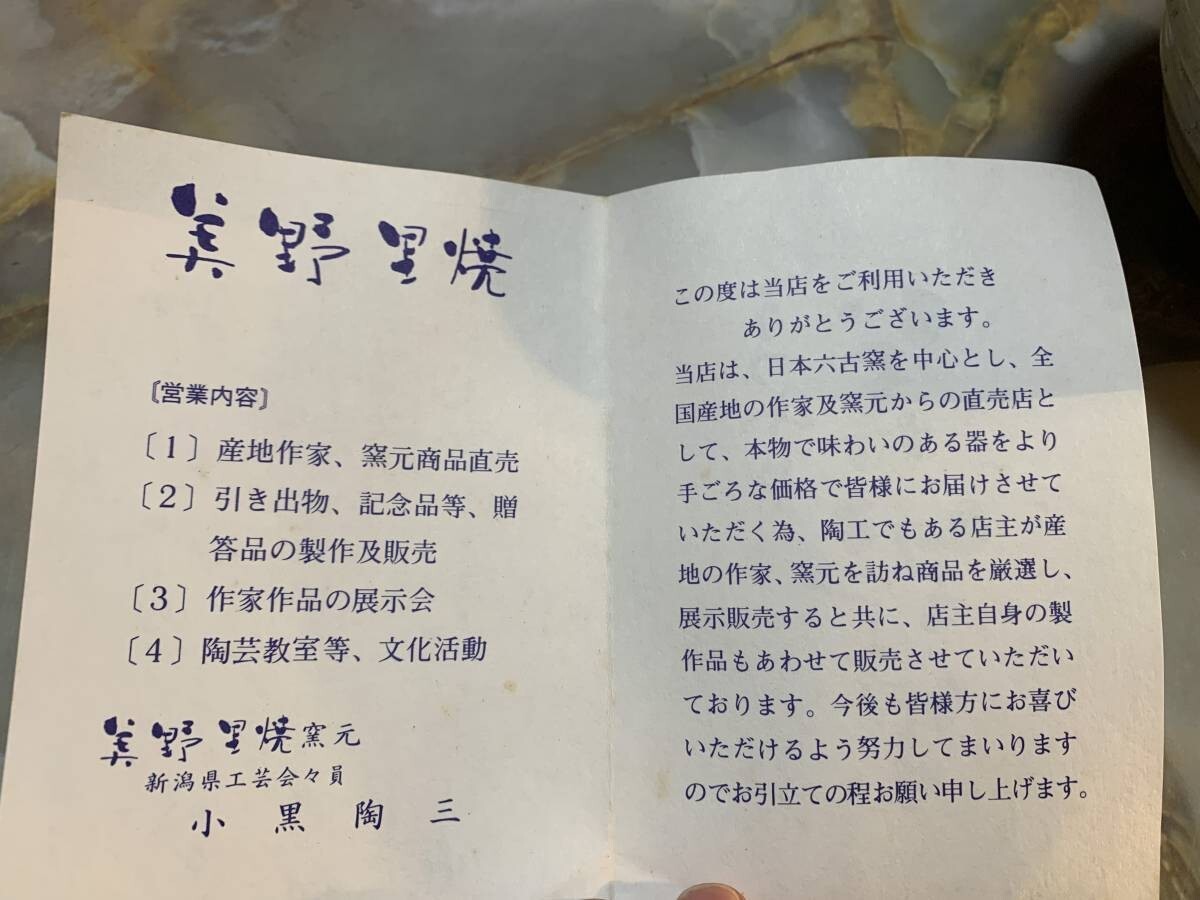 美野里焼
〔営業内容〕
〔1〕産地作家、窯元商品直売
〔2〕引き出物、記念品等、贈
答品の製作及販売
〔3〕作家作品の展示会
〔4〕陶芸教室等、文化活動
美野里焼窯元
新潟県工芸会々員
小黒陶三
この度は当店をご利用いただき
ありがとうございます。
当店は、日本六古窯を中心とし、全
国産地の作家及窯元からの直売店と
して、本物で味わいのある器をより
手ごろな価格で皆様にお届けさせて
いただく為、陶工でもある店主が産
地の作家、窯元を訪ね商品を厳選し、
展示販売すると共に、店主自身の製
作品もあわせて販売させていただい
ております。今後も皆様方にお喜び
いただけるよう努力してまいります
のでお引立ての程お願い申し上げます。